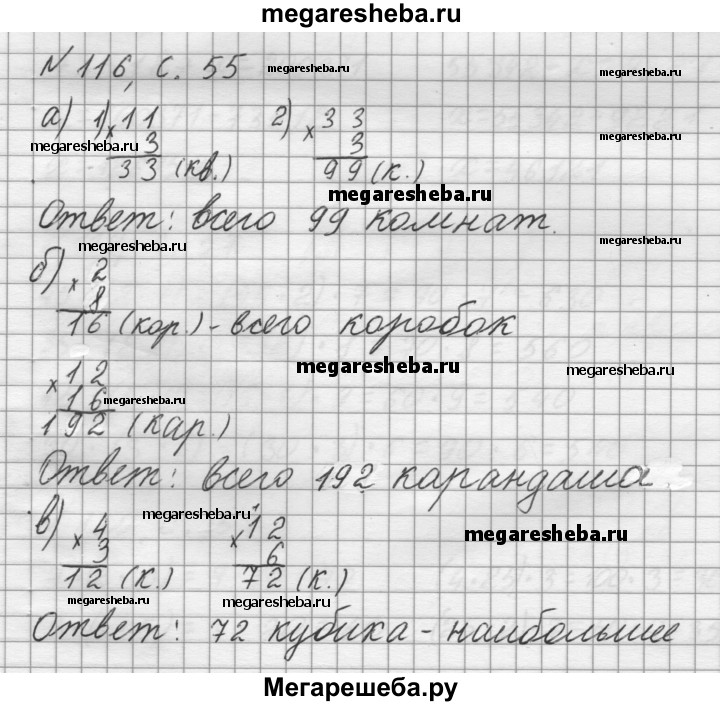 megaresheba.ru
N 116, с. 55 megaresheba.ru megaresheba.ru
а) 1) × 11 2) × 33
megaresheba.ru 3 3
33 (кв.) 99 (к.)
megaresheba.ru
Ответ: всего 99 комнат.
megaresheba.ru megaresheba.ru
б) × 2
8
16 (кор.) - всего коробок
megaresheba.ru megaresheba.ru
× 12
16 megaresheba.ru
192 (кар.)
Ответ: всего 192 карандаша
megaresheba.ru
в) × 4 × 12
3 6 megaresheba.ru
12 (к.) 72 (к.)
megaresheba.ru megaresheba.ru
Ответ: 72 кубика - наибольшее
Мегарешеба.ру